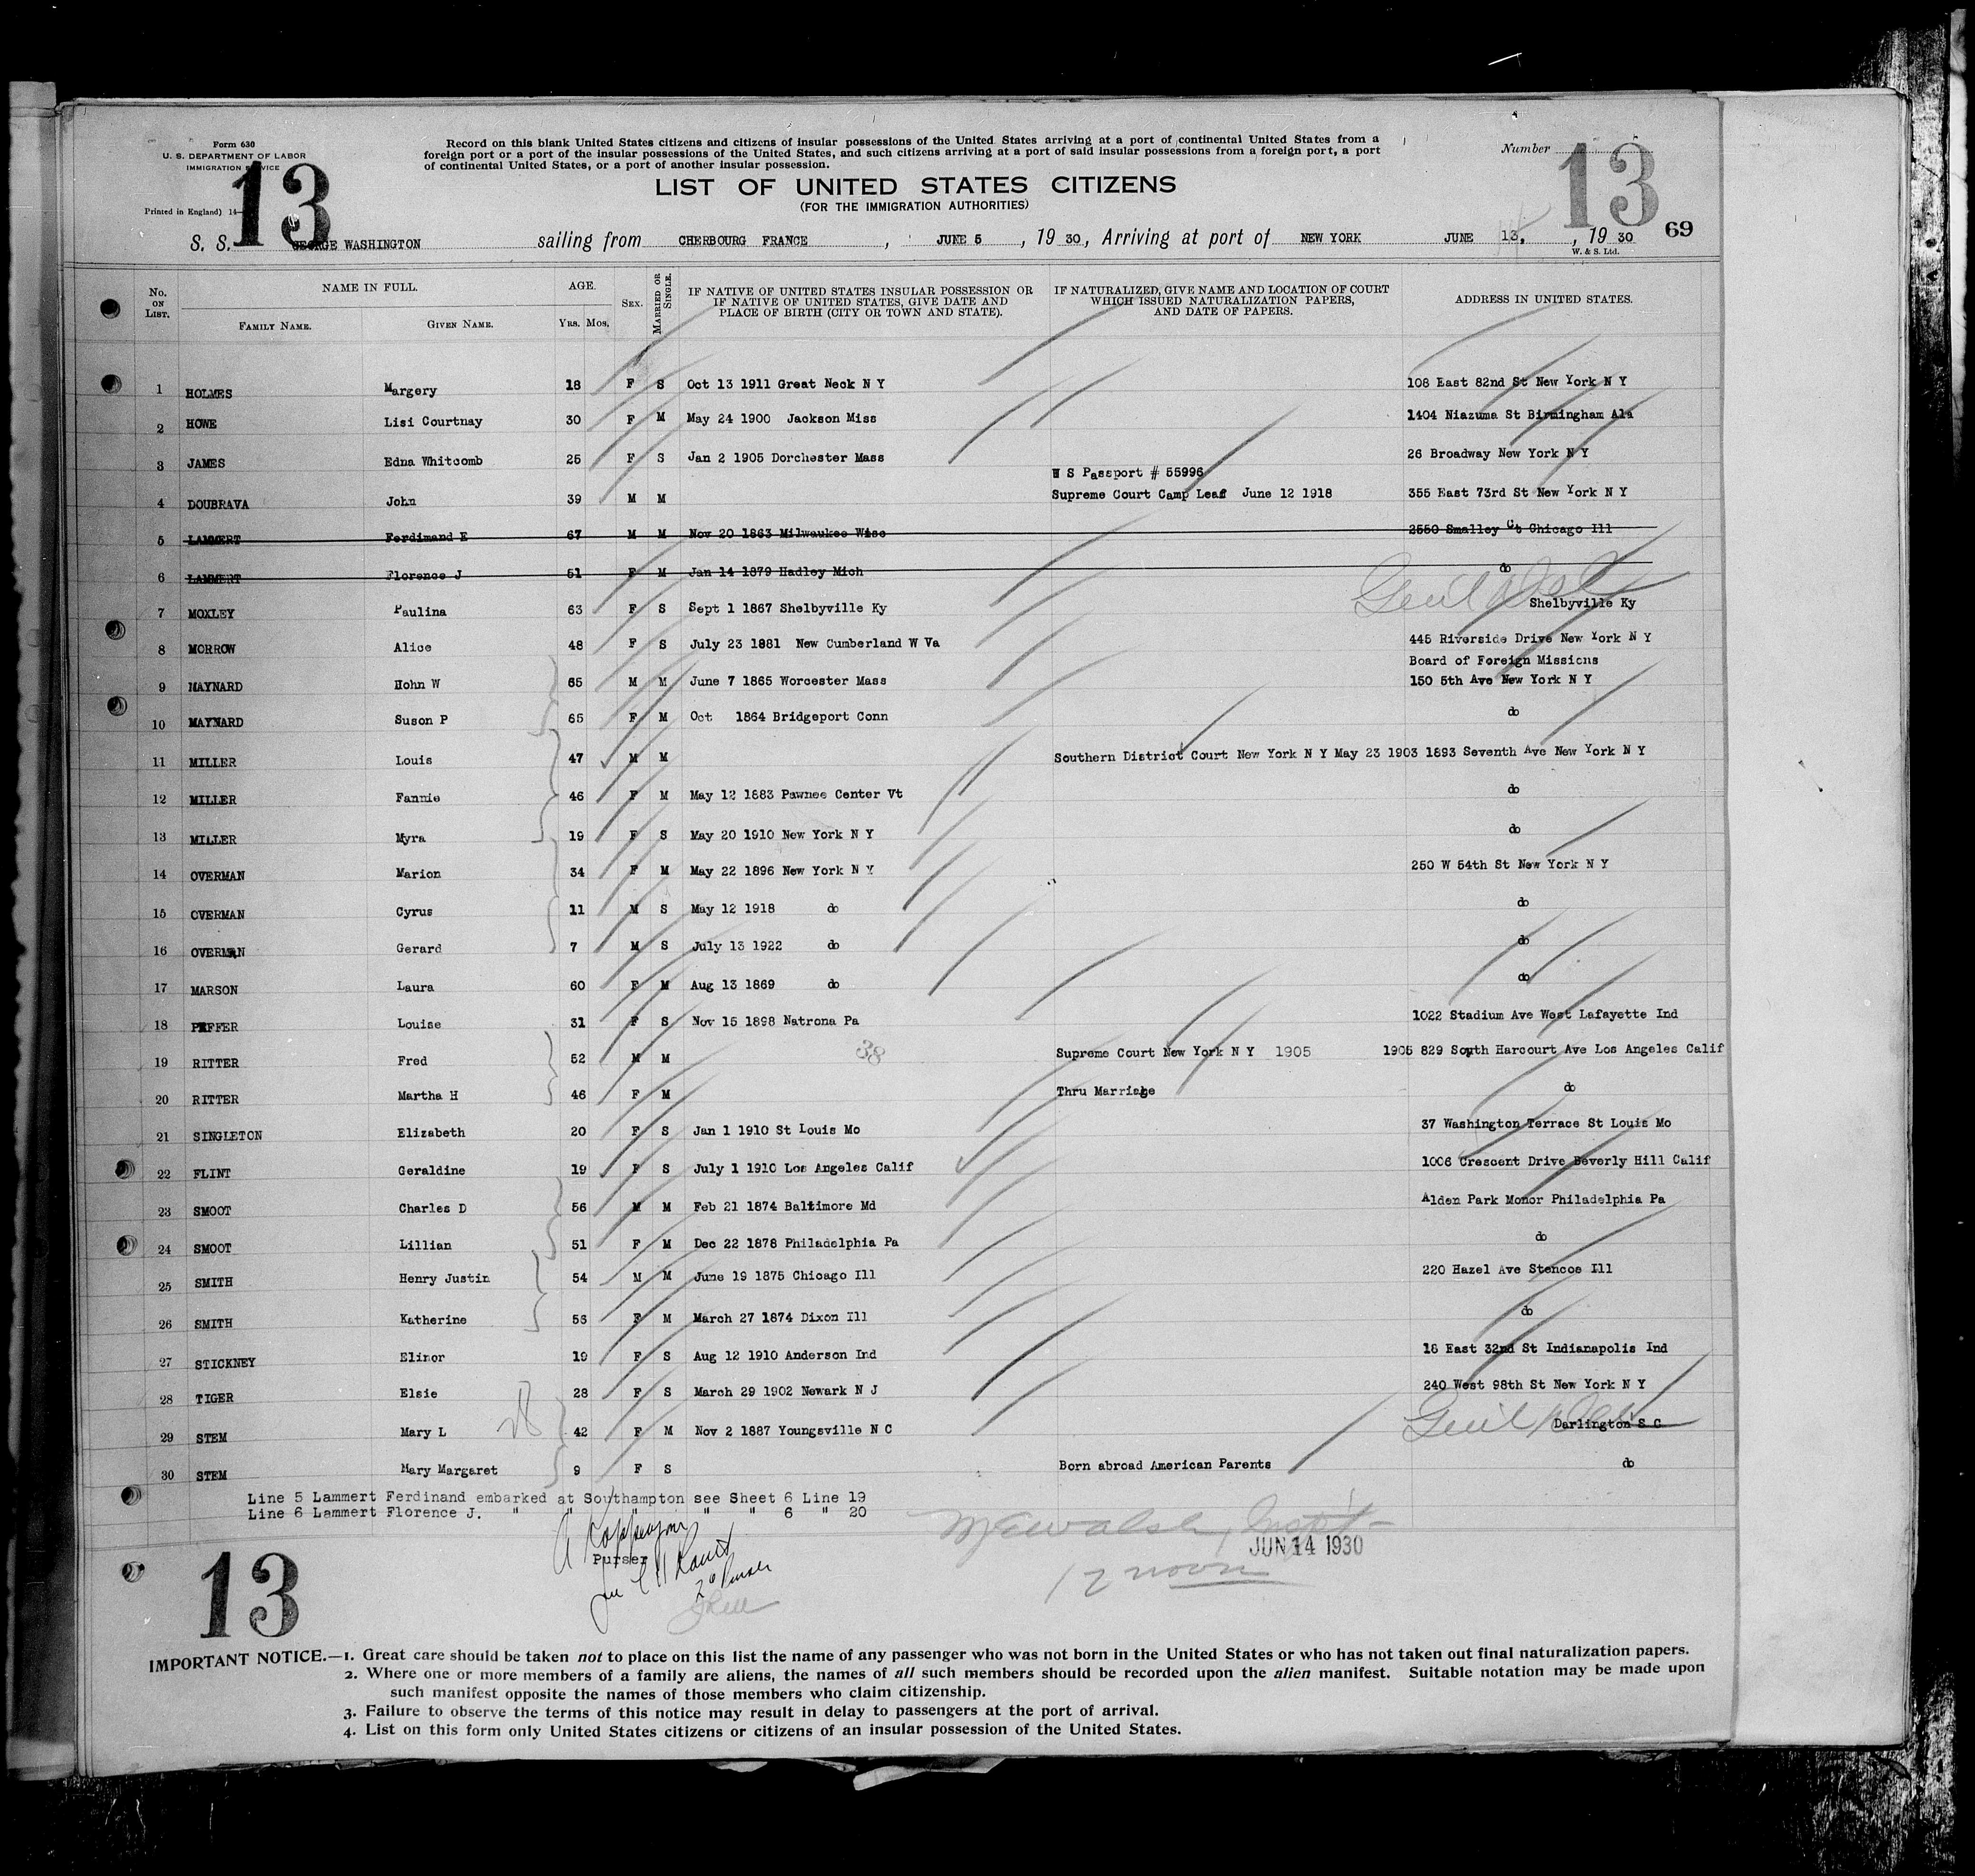 Form 630
U. S. DEPARTMENT OF LABOR
IMMIGRATION SERVICE
Printed in England) 14-
13
Record on this blank United States citizens and citizens of insular possessions of the United States arriving at a port of continental United States from a
foreign port or a port of the insular possessions of the United States, and such citizens arriving at a port of said insular possessions from a foreign port, a port
of continental United States, or a port of another insular possession.
Number 13
LIST OF UNITED STATES CITIZENS
(FOR THE IMMIGRATION AUTHORITIES)
69
S. S. GEORGE WASHINGTON sailing from CHERBOURG FRANCE , JUNE 5 , 19 30, Arriving at port of NEW YORK JUNE 13. , 19 30
W. & S. Ltd.
No. ON LIST. NAME IN FULL. FAMILY NAME. GIVEN NAME. AGE. YRS. MOS. SEX. MARRIED OR SINGLE. IF NATIVE OF UNITED STATES INSULAR POSSESSION OR IF NATIVE OF UNITED STATES, GIVE DATE AND PLACE OF BIRTH (CITY OR TOWN AND STATE). IF NATURALIZED, GIVE NAME AND LOCATION OF COURT WHICH ISSUED NATURALIZATION PAPERS, AND DATE OF PAPERS. ADDRESS IN UNITED STATES.
1 HOLMES Margery 18 F S Oct 13 1911 Great Neck N Y 108 East 82nd St New York N Y
2 HOWE Lisi Courtnay 30 F M May 24 1900 Jackson Miss 1404 Niazuma St Birmingham Ala
3 JAMES Edna Whitcomb 25 F S Jan 2 1905 Dorchester Mass 26 Broadway New York N Y
S Passport # 55996
4 DOUBRAVA John 39 M M Supreme Court Camp Leaf June 12 1918 355 East 73rd St New York N Y
5 LAMMERT Ferdimand E 67 M M Nov 20 1863 Milwaukee Wisc 2550 Smalley Ct Chicago Ill
6 LAMMERT Florence J 51 F M Jan 14 1879 Hadley Mich do
7 MOXLEY Paulina 63 F S Sept 1 1867 Shelbyville Ky Shelbyville Ky
8 MORROW Alice 48 F S July 23 1881 New Cumberland W Va 445 Riverside Drive New York N Y
Board of Foreign Missions
9 MAYNARD Hohn W 65 M M June 7 1865 Worcester Mass 150 5th Ave New York N Y
10 MAYNARD Suson P 65 F M Oct 1864 Bridgeport Conn do
11 MILLER Louis 47 M M Southern District Court New York N Y May 23 1903 1893 Seventh Ave New York N Y
12 MILLER Fannie 46 F M May 12 1883 Pawnee Center Vt do
13 MILLER Myra 19 F S May 20 1910 New York N Y do
14 OVERMAN Marion 34 F M May 22 1896 New York N Y 250 W 54th St New York N Y
15 OVERMAN Cyrus 11 M S May 12 1918 do do
16 OVERMAN Gerard 7 M S July 13 1922 do do
17 MARSON Laura 60 F M Aug 13 1869 do do
18 PEFFER Louise 31 F S Nov 15 1898 Natrona Pa 1022 Stadium Ave West Lafayette Ind
19 RITTER Fred 52 M M 38 Supreme Court New York N Y 1905 1905 829 South Harcourt Ave Los Angeles Calif
20 RITTER Martha H 46 F M Thru Marriage do
21 SINGLETON Elizabeth 20 F S Jan 1 1910 St Louis Mo 37 Washington Terrace St Louis Mo
22 FLINT Geraldine 19 F S July 1 1910 Los Angeles Calif 1006 Crescent Drive Beverly Hill Calif
23 SMOOT Charles D 56 M M Feb 21 1874 Baltimore Md Alden Park Monor Philadelphia Pa
24 SMOOT Lillian 51 F M Dec 22 1878 Philadelphia Pa do
25 SMITH Henry Justin 54 M M June 19 1875 Chicago Ill 220 Hazel Ave Stencoe Ill
26 SMITH Katherine 56 F M March 27 1874 Dixon Ill do
27 STICKNEY Elinor 19 F S Aug 12 1910 Anderson Ind 16 East 32nd St Indianapolis Ind
28 TIGER Elsie 28 F S March 29 1902 Newark N J 240 West 98th St New York N Y
29 STEM Mary L 42 F M Nov 2 1887 Youngsville N C Darlington S C
30 STEM Mary Margaret 9 F S Born abroad American Parents do
Line 5 Lammert Ferdinand embarked at Southampton see Sheet 6 Line 19
Line 6 Lammert Florence J. " " " " " 6 " 20
Purser
JUN 14 1930
12 noon
13
IMPORTANT NOTICE.—1. Great care should be taken not to place on this list the name of any passenger who was not born in the United States or who has not taken out final naturalization papers.
2. Where one or more members of a family are aliens, the names of all such members should be recorded upon the alien manifest. Suitable notation may be made upon
such manifest opposite the names of those members who claim citizenship.
3. Failure to observe the terms of this notice may result in delay to passengers at the port of arrival.
4. List on this form only United States citizens or citizens of an insular possession of the United States.